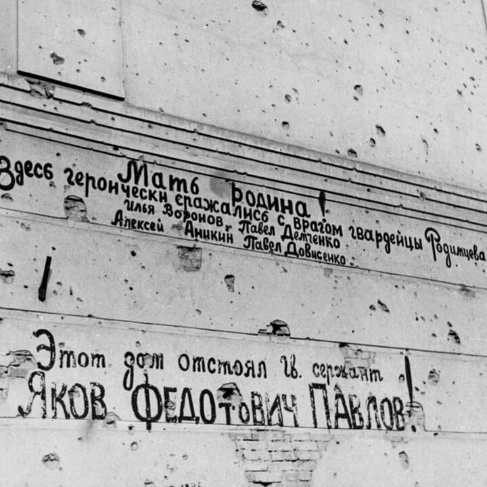 Мать Родина!
Здесь героически сражались с врагом гвардейцы Родимцева
Илья Воронов, Павел Демченко
Алексей Аникин Павел Довисенко
Этот дом отстоял гв. сержант
Яков Федотович Павлов!